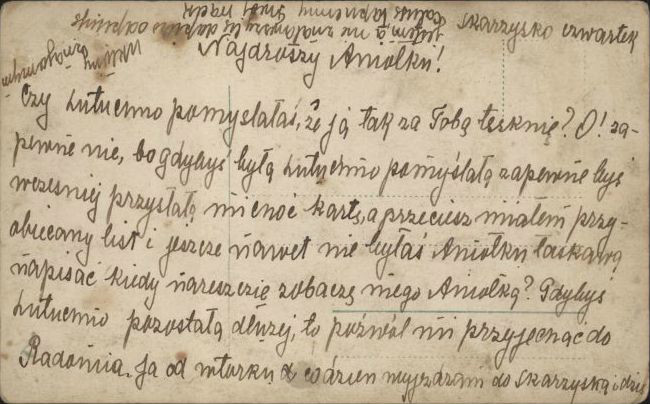 Skarzysko czwartek
Najdroszy Aniołku!
Czy Lutuchno pomyslałaś, że ja tak za Tobą tęsknię? O! za-
pewne nie, bo gdybyś była Lutuchno pomyślała zapewne byś
wczesniej przysłała mi choć kartę, a przeciesz miałem przy-
obiecany list i jeszcze nawet nie byłaś Aniołku łaskawą
napisać kiedy nareszczie zobaczę mego Aniołka? Gdybyś
Lutuchno pozostała dłuzej, to pozwol mi przyjechać do
Radomia. Ja od wtorku codzien wyjezdzam do Skarzyska i dziś